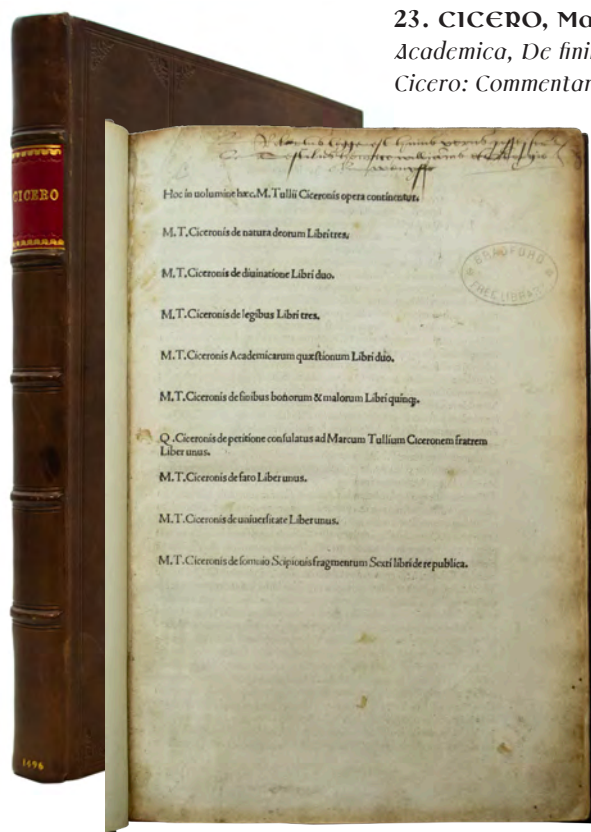 23. CICERO, Ma
Academica, De fini
Cicero: Commentar
CICERO
1496
Hoc in uolumine hæc. M. Tullii Ciceronis opera continentur.
M.T.Ciceronis de natura deorum Libri tres.
M.T.Ciceronis de diuinatione Libri duo.
M.T.Ciceronis de legibus Libri tres.
M.T.Ciceronis Academicarum quæstionum Libri duo.
M.T.Ciceronis de finibus bonorum & malorum Libri quinq;.
Q.Ciceronis de petitione consulatus ad Marcum Tullium Ciceronem fratrem
Liber unus.
M.T.Ciceronis de fato Liber unus.
M.T.Ciceronis de uniuersitate Liber unus.
M.T.Ciceronis de somnio Scipionis fragmentum Sexti libri de republica.
BRADFORD
FREE LIBRARY